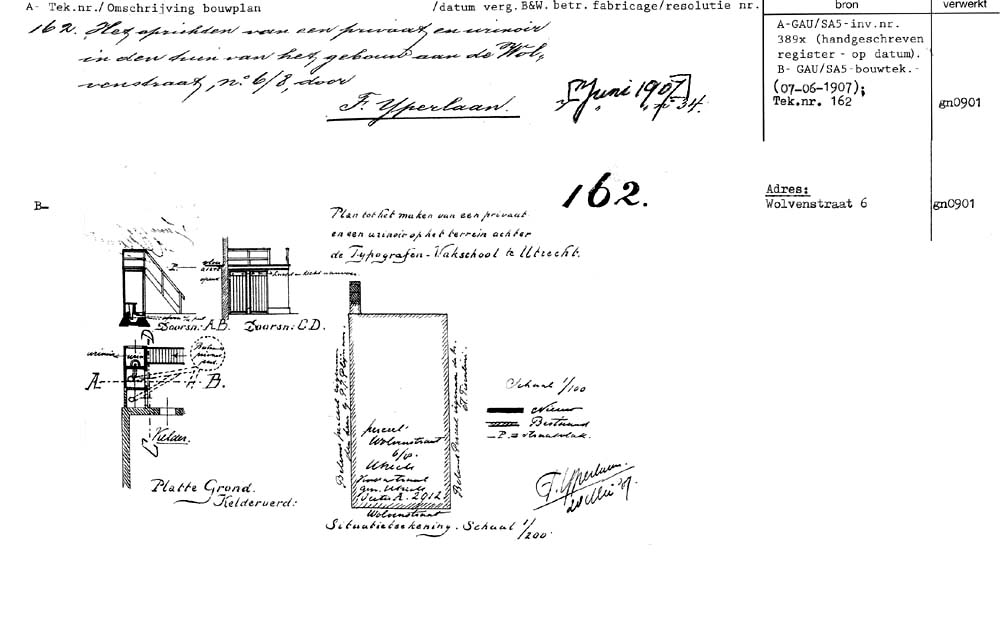 A- Tek.nr./ Omschrijving bouwplan /datum verg. B&W. betr. fabricage/resolutie nr.
bron
verwerkt
162. Het oprichten van een privaat en urinoir
in den tuin van het gebouw aan de Wol-
venstraat, no 6/8, door
F. Yperlaan.
[7 Juni 1907]
no 34.
A-GAU/SA5-inv.nr.
389x (handgeschreven
register - op datum).
B- GAU/SA5-bouwtek.-
(07-06-1907);
Tek.nr. 162
gn0901
Adres:
Wolvenstraat 6
gn0901
B-
162.
Plan tot het maken van een privaat
en een urinoir op het terrein achter
de Typografen-Vakschool te Utrecht.
P.
Doorsn: A.B.
Doorsn: C.D.
urinoir
D
A
B.
C
Kelder.
Platte Grond.
Kelderverd:
perceel
Wolvenstraat
6/8.
Utrecht
Kadastraal
gem. Utrecht
Sectie A. 2012
Wolvenstraat
Situatieteekening. Schaal 1/200
Schaal 1/100
Nieuw
Bestaand
- P. = straatvlak.
F. Yperlaan.